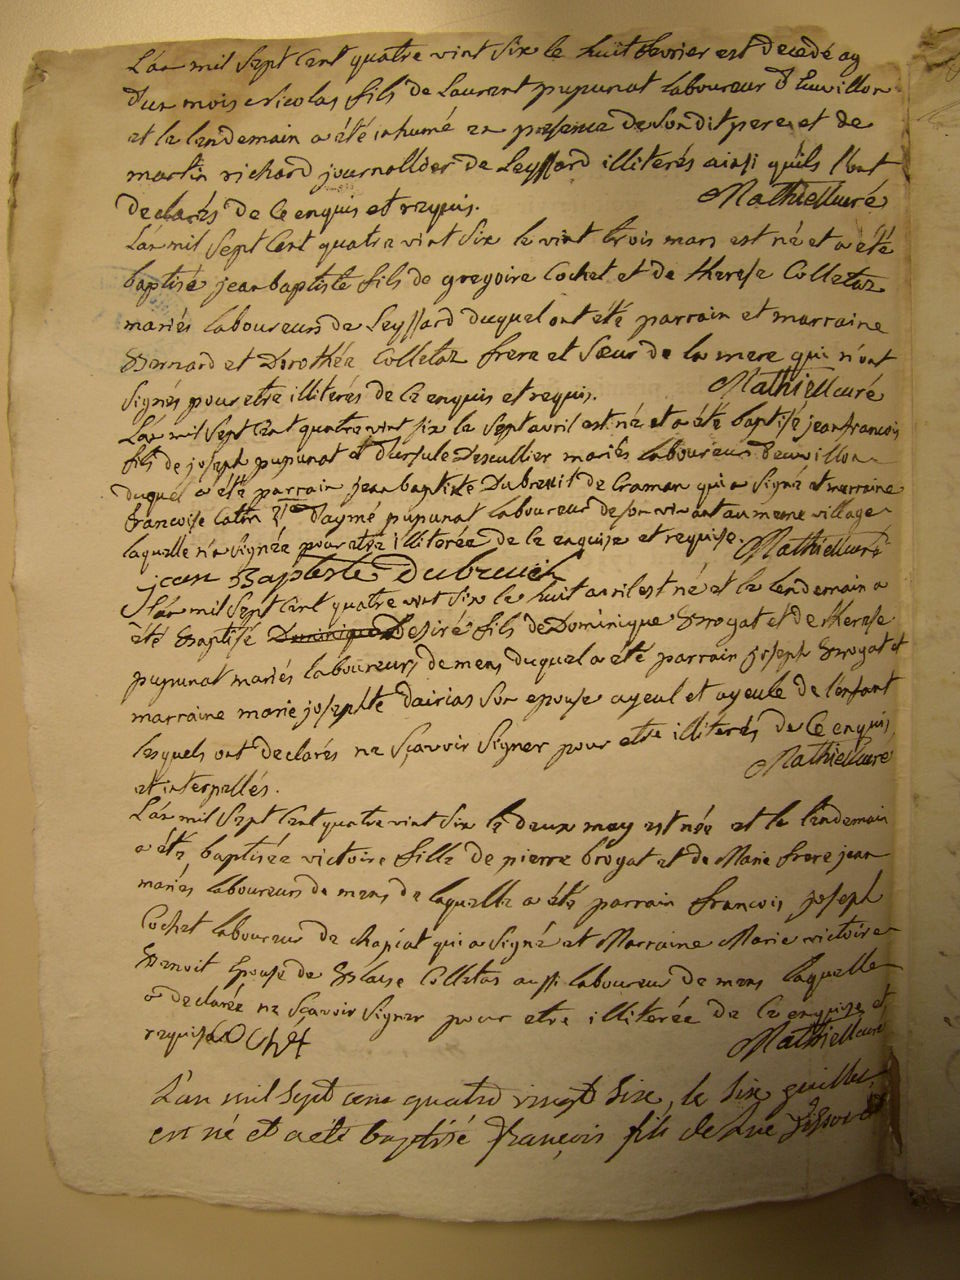 L'an mil sept Cent quatre vint six le huit fevrier est decedé ag
d'un mois nicolas fils de Laurent pupunat laboureur d'Euvillon
et le lendemain a été inhumé en presence de son dit pere et de
martin richard journallier de Leyssard illiterés ainsi qu'ils l'ont
declarés de Ce enquis et requis. Mathieu curé
L'an mil sept Cent quatre vint six le vint trois mars est né et a été
baptisé jean baptiste fils de gregoire Cochet et de therese Colletaz
mariés laboureurs de Leyssard duquel ont été parrain et marraine
Bernard et Dorothée Colletaz frere et sœur de la mere qui n'ont
signés pour etre illiterés de Ce enquis et requis. Mathieu curé
L'an mil sept Cent quatre vint six le sept avril est né et a été baptisé jean francois
fils de joseph pupunat et d'ursule Descullier mariés laboureurs d'euvillon
duquel a été parrain jean baptiste Dubreuil de Craman qui a signé et marraine
francoise Catin d'aymé pupunat laboureur de son vivant au meme village
laquelle n'a signée pour etre illiterée de Ce enquise et requise. Mathieu curé
jean Baptiste Dubreuil
L'an mil sept Cent quatre vint six le huit avril est né et le lendemain a
été Baptisé Dominique Desiré fils de Dominique Brogat et de therese
pupunat mariés laboureurs de mens duquel a été parrain joseph Brogat et
marraine marie josephte dairias son epouse ayeul et ayeule de l'enfant
lesquels ont declarés ne sçavoir signer pour etre illiterés de Ce enquis
et interpellés. Mathieu curé
L'an mil sept Cent quatre vint six le deux may est née et le lendemain
a été baptisée victoire fille de pierre brogat et de Marie frere jean
mariés laboureurs de mens de laquelle a été parrain francois joseph
Cochet laboureur de chapiat qui a signé et Marraine Marie victoire
Benoit Epouse de Blaise Colletas aussi laboureur de mens laquelle
a declarée ne sçavoir signer pour etre illiterée de Ce enquise et
requise Mathieu curé
L'an mil sept cent quatre vingt six, le six juillet
est né et a été baptisé François fils de Luc